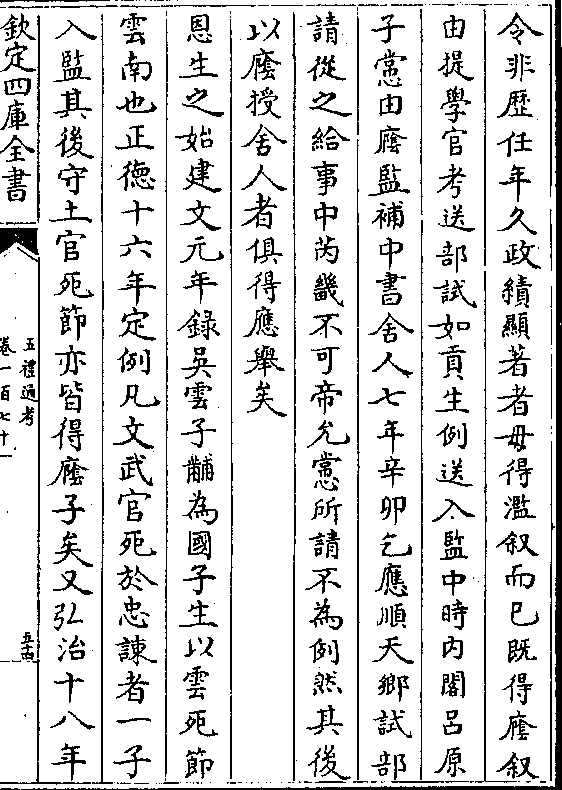 令非歴任年久政績顯著者毋得濫叙而已既得廕叙
由提學官考送部試如貢生例送入監中時内閣吕原
子㦂由廕監補中書舍人七年辛卯乞應順天鄉試部
請從之給事中芮畿不可帝允㦂所請不為例然其後
以廕授舍人者俱得應舉矣
恩生之始建文元年録吳雲子黼為國子生以雲死節
雲南也正徳十六年定例凡文武官死於忠諫者一子
入監其後守土官死節亦皆得廕子矣又弘治十八年
欽定四庫全書
五禮通考
卷一百七十一
五十四